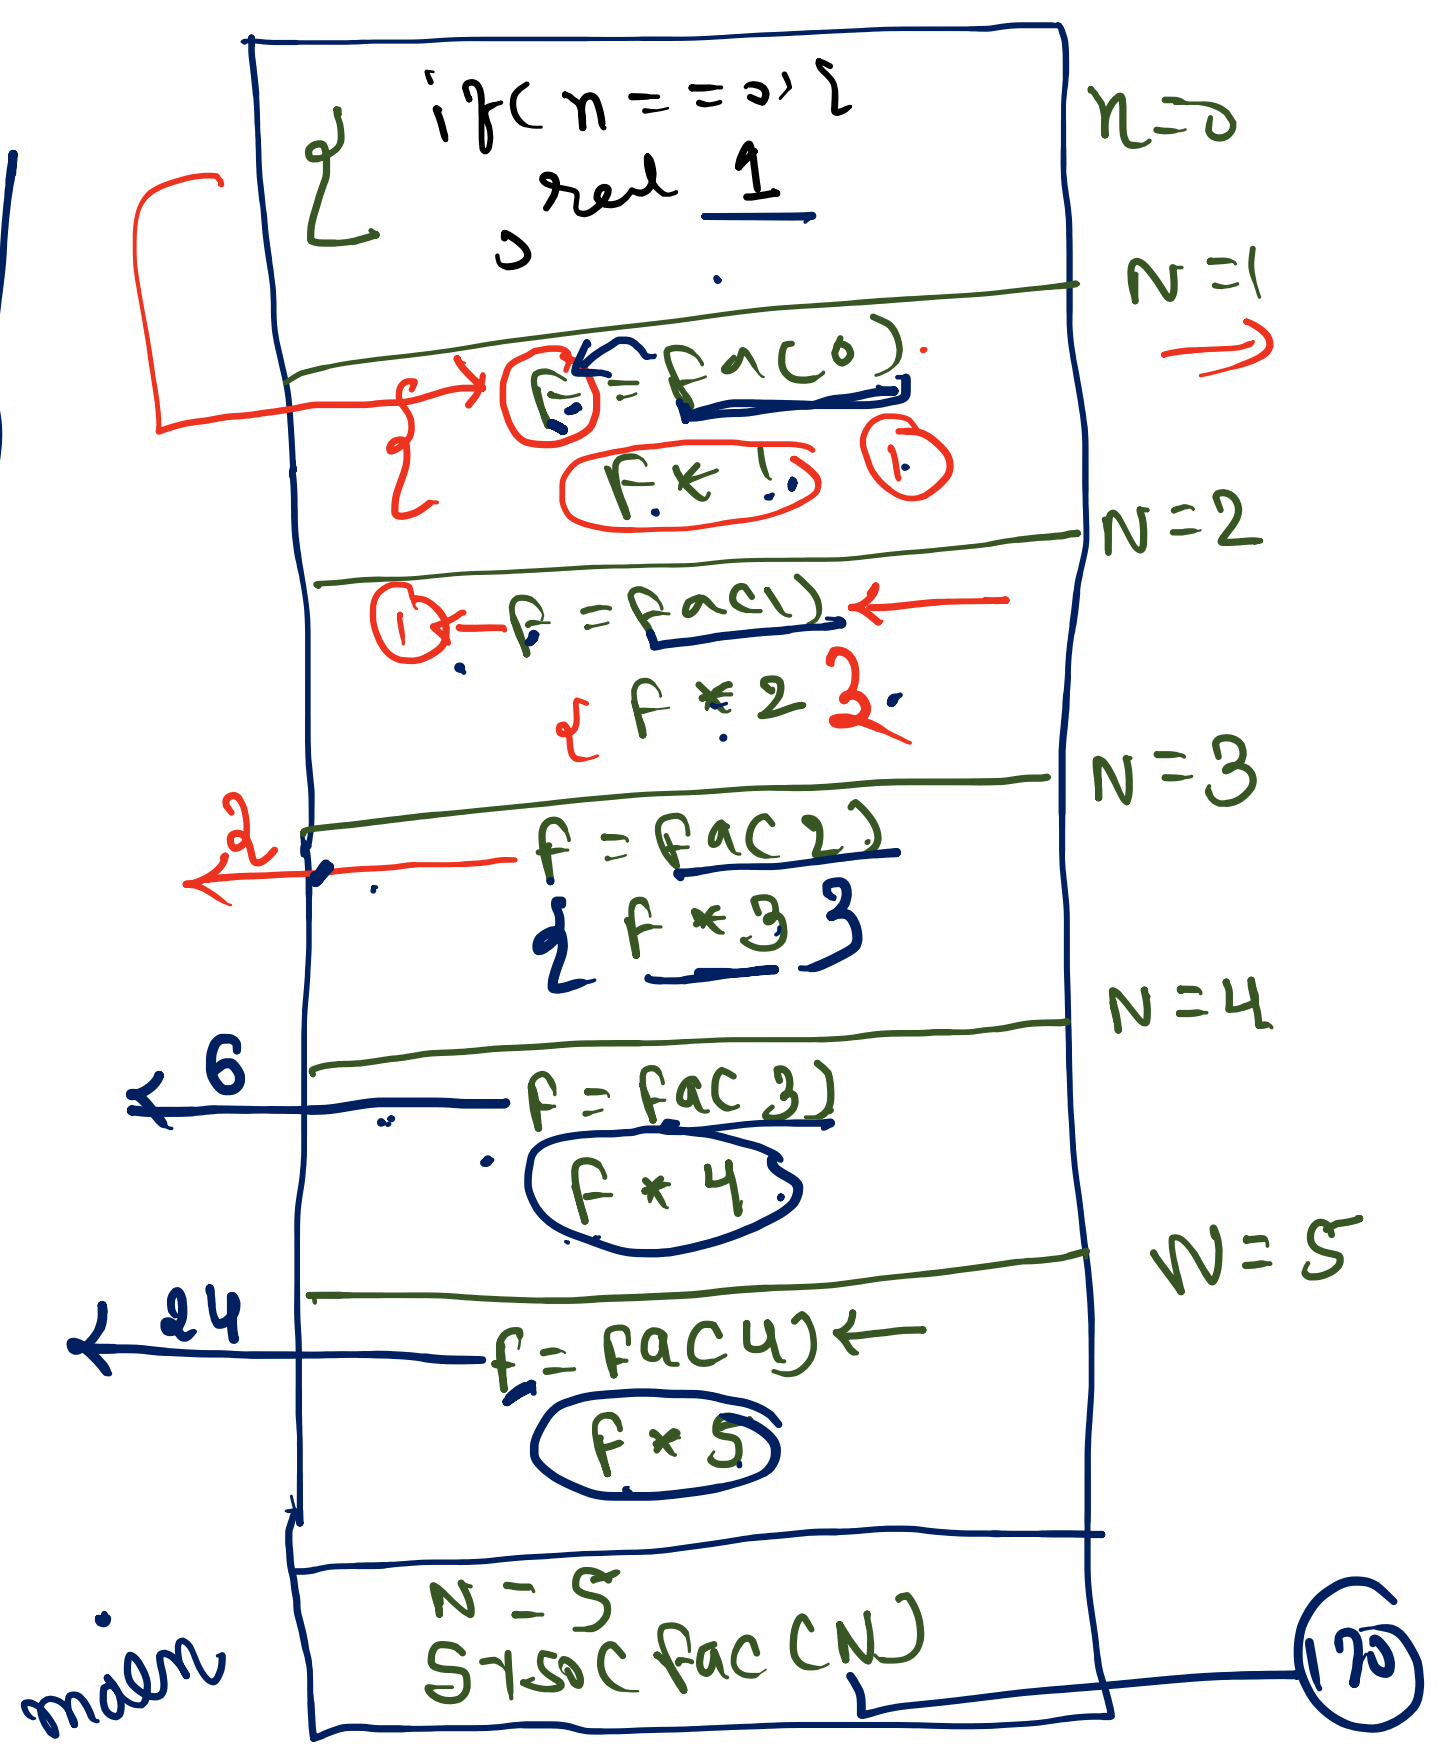 if(n==0){
n=0
ret 1
}
N=1
f = fac(0)
f * 1
1
N=2
1
f = fac(1)
{ f * 2 }
N=3
2
f = fac(2)
{ f * 3 }
N=4
6
f = fac(3)
f * 4
N=5
24
f = fac(4)
f * 5
N=5
Syso(fac(N)
main
120